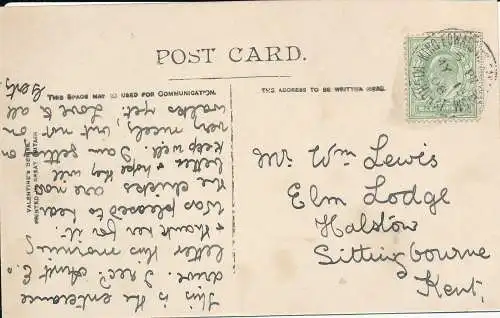 POST CARD.
THIS SPACE MAY BE USED FOR COMMUNICATION.
THE ADDRESS TO BE WRITTEN HERE.
VALENTINE'S SERIES
PRINTED IN GREAT BRITAIN
This is the enterance
drive. I rec'd Aunt E.'s
letter this morning
& thank her for it.
Was pleased to hear
the chicks are now
better & hope they will
keep well. I am getting on
very nicely, but not on
walks yet. Love to all
Gerty
Mr Wm Lewis
Elm Lodge
Halstow
Sittingbourne
Kent.
KING EDWARD